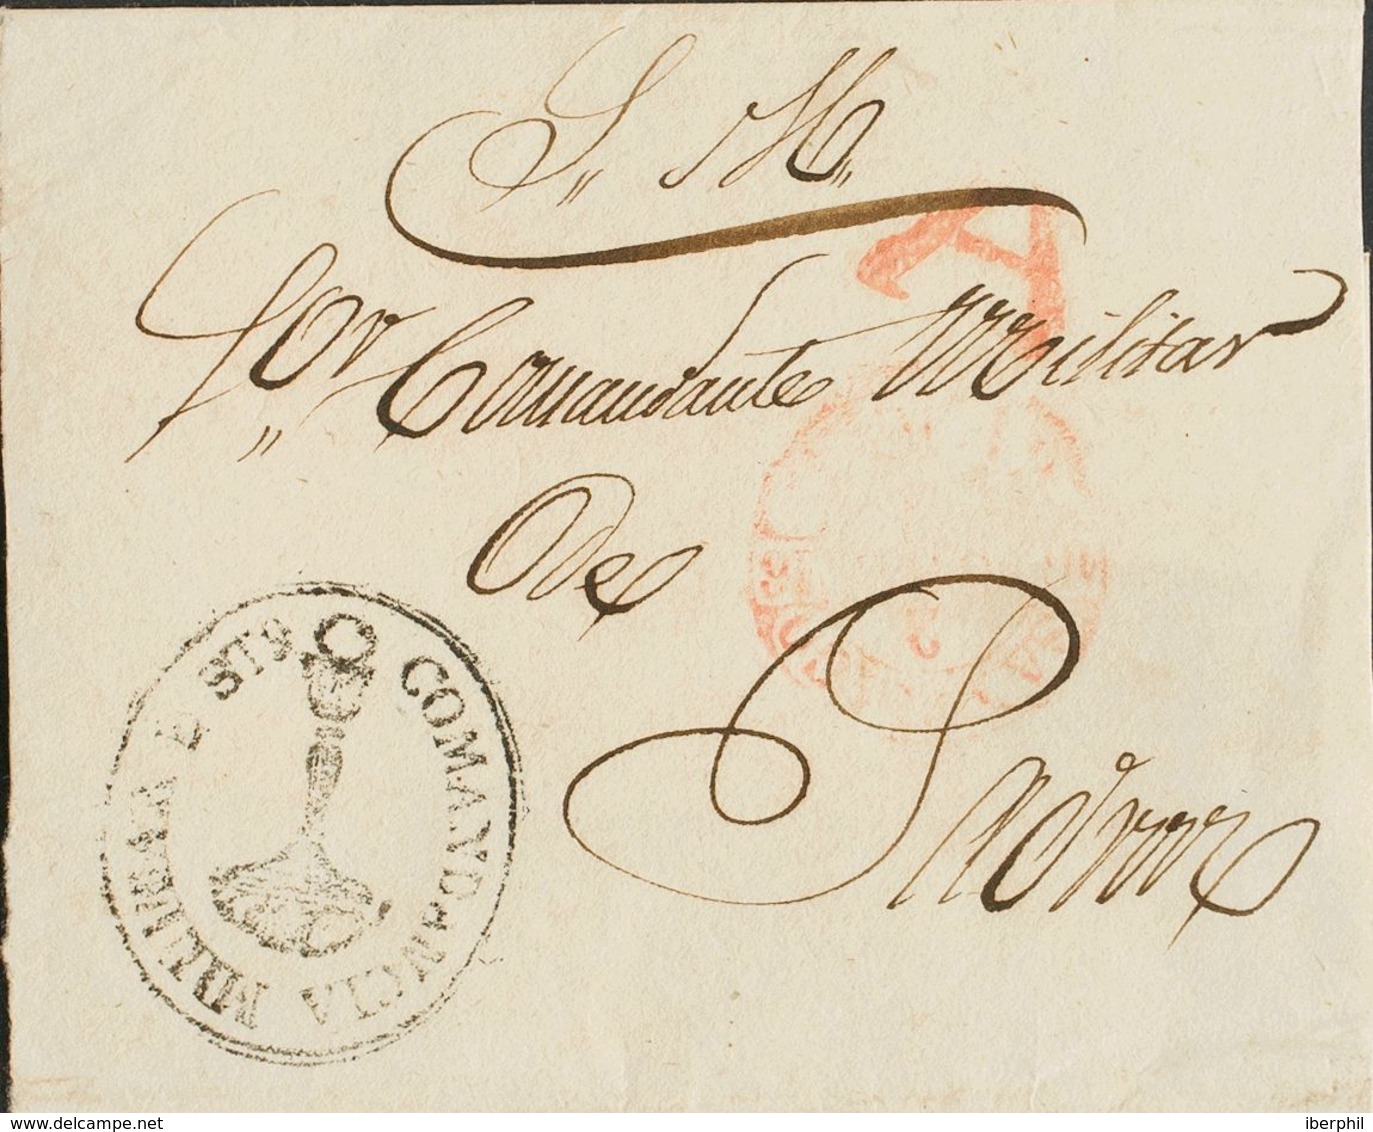 S,, M,,
Sor,, Comandante Militar
De
Padron
A
COMANDANCIA MILITAR DE STGO
delcampe.net
iberphil